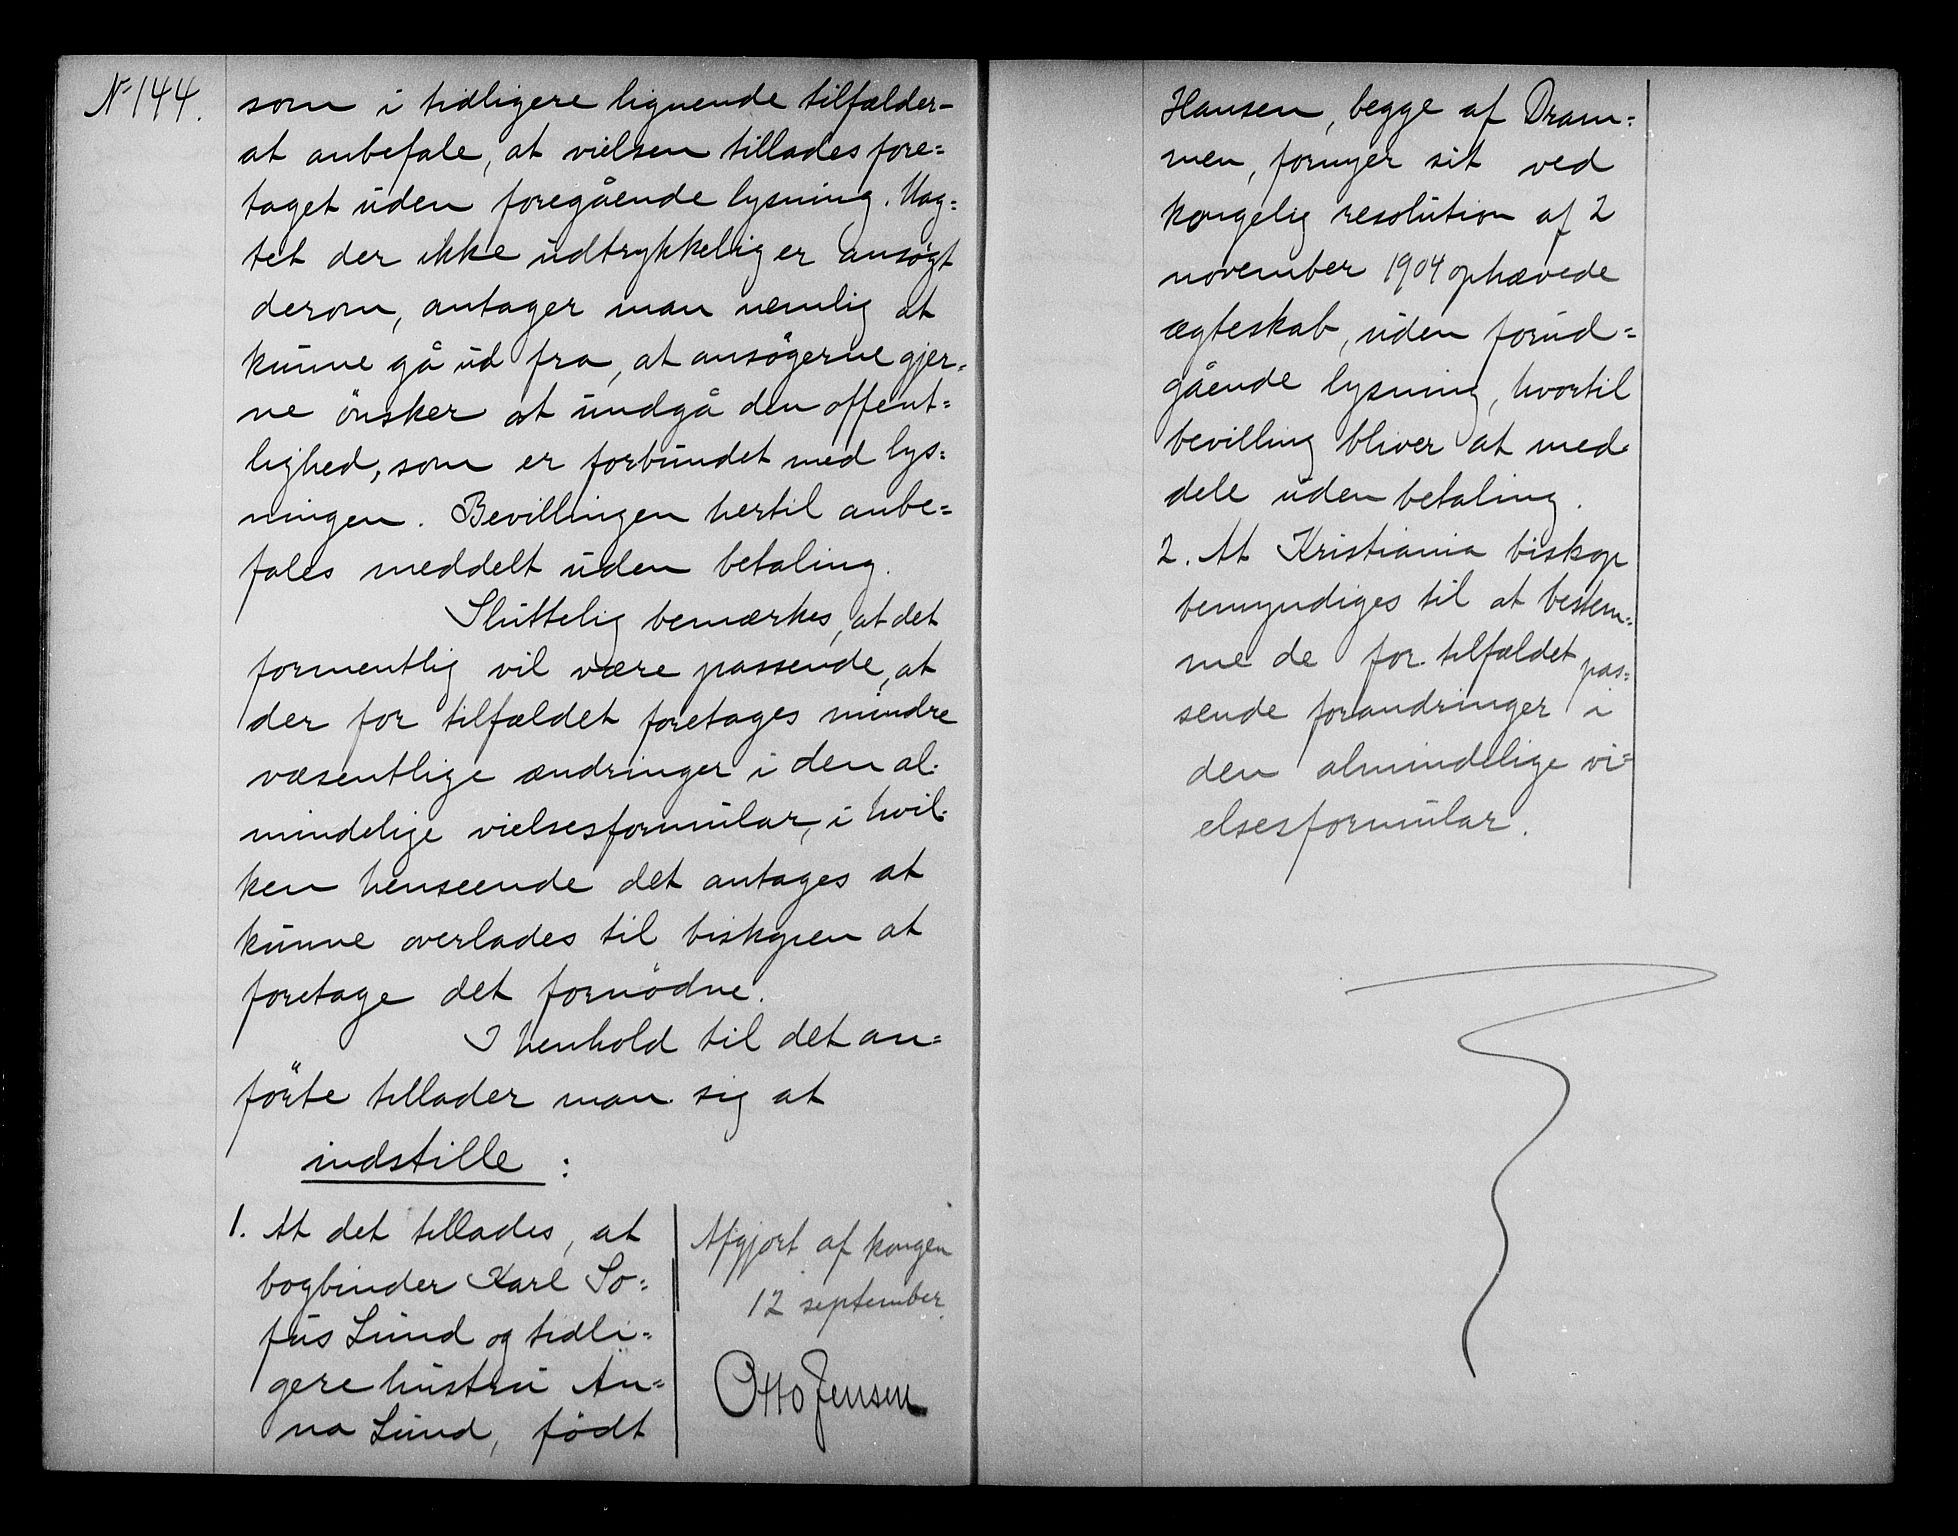 No 144.
som i tidligere lignende tilfælder –
at anbefale, at vielsen tillades fore=
taget uden foregående lysning. Uag=
tet der ikke udtrykkelig er ansøgt
derom, antager man nemlig at
kunne gå ud fra, at ansøgerne gjer=
ne ønsker at undgå den offent=
lighed, som er forbundet med lys=
ningen. Bevillingen hertil anbe=
fales meddelt uden betaling.
Sluttelig bemærkes, at det
formentlig vil være passende, at
der for tilfældet foretages mindre
væsentlige ændringer i den al=
mindelige vielsesformular, i hvil=
ken henseende det antages at
kunne overlades til biskopen at
foretage det fornødne.
I henhold til det an=
førte tillader man sig at
indstille :
1. At det tillades, at
bogbinder Karl So=
fus Lund og tidli=
gere hustru An=
na Lund, født
Afgjort af kongen
12 september.
Otto Jensen
Hansen, begge af Dram=
men, fornyer sit ved
kongelig resolution af 2
november 1904 ophævede
ægteskab, uden forud=
gående lysning, hvortil
bevilling bliver at med=
dele uden betaling.
2. At Kristiania biskop
bemyndiges til at bestem=
me de for tilfældet pas=
sende forandringer i
den almindelige vi=
elsesformular.